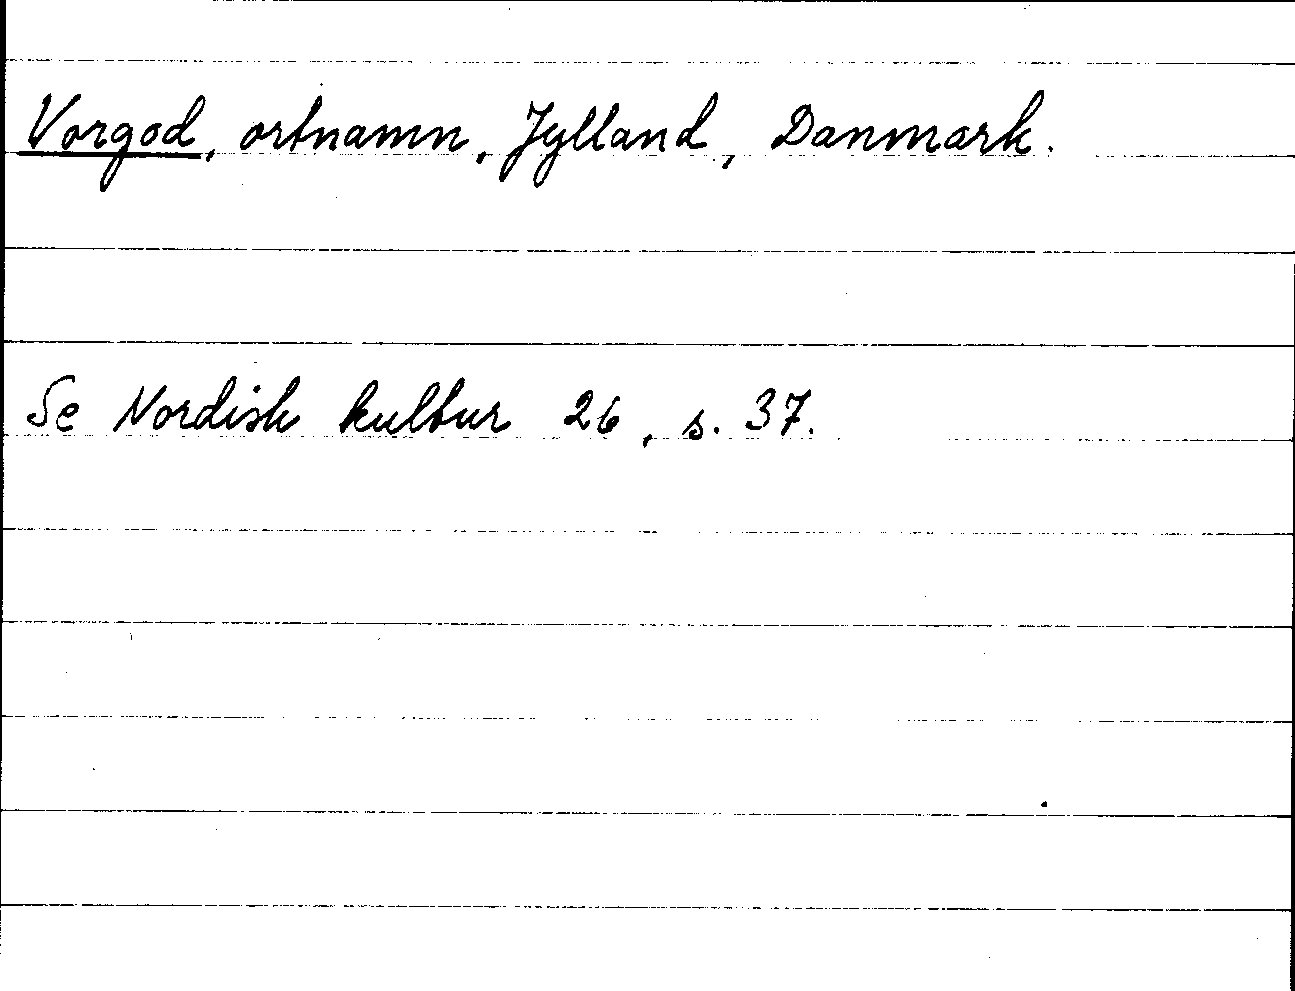 Vorgod, ortnamn, Jylland, Danmark.
Se Nordisk kultur 26, s. 37.